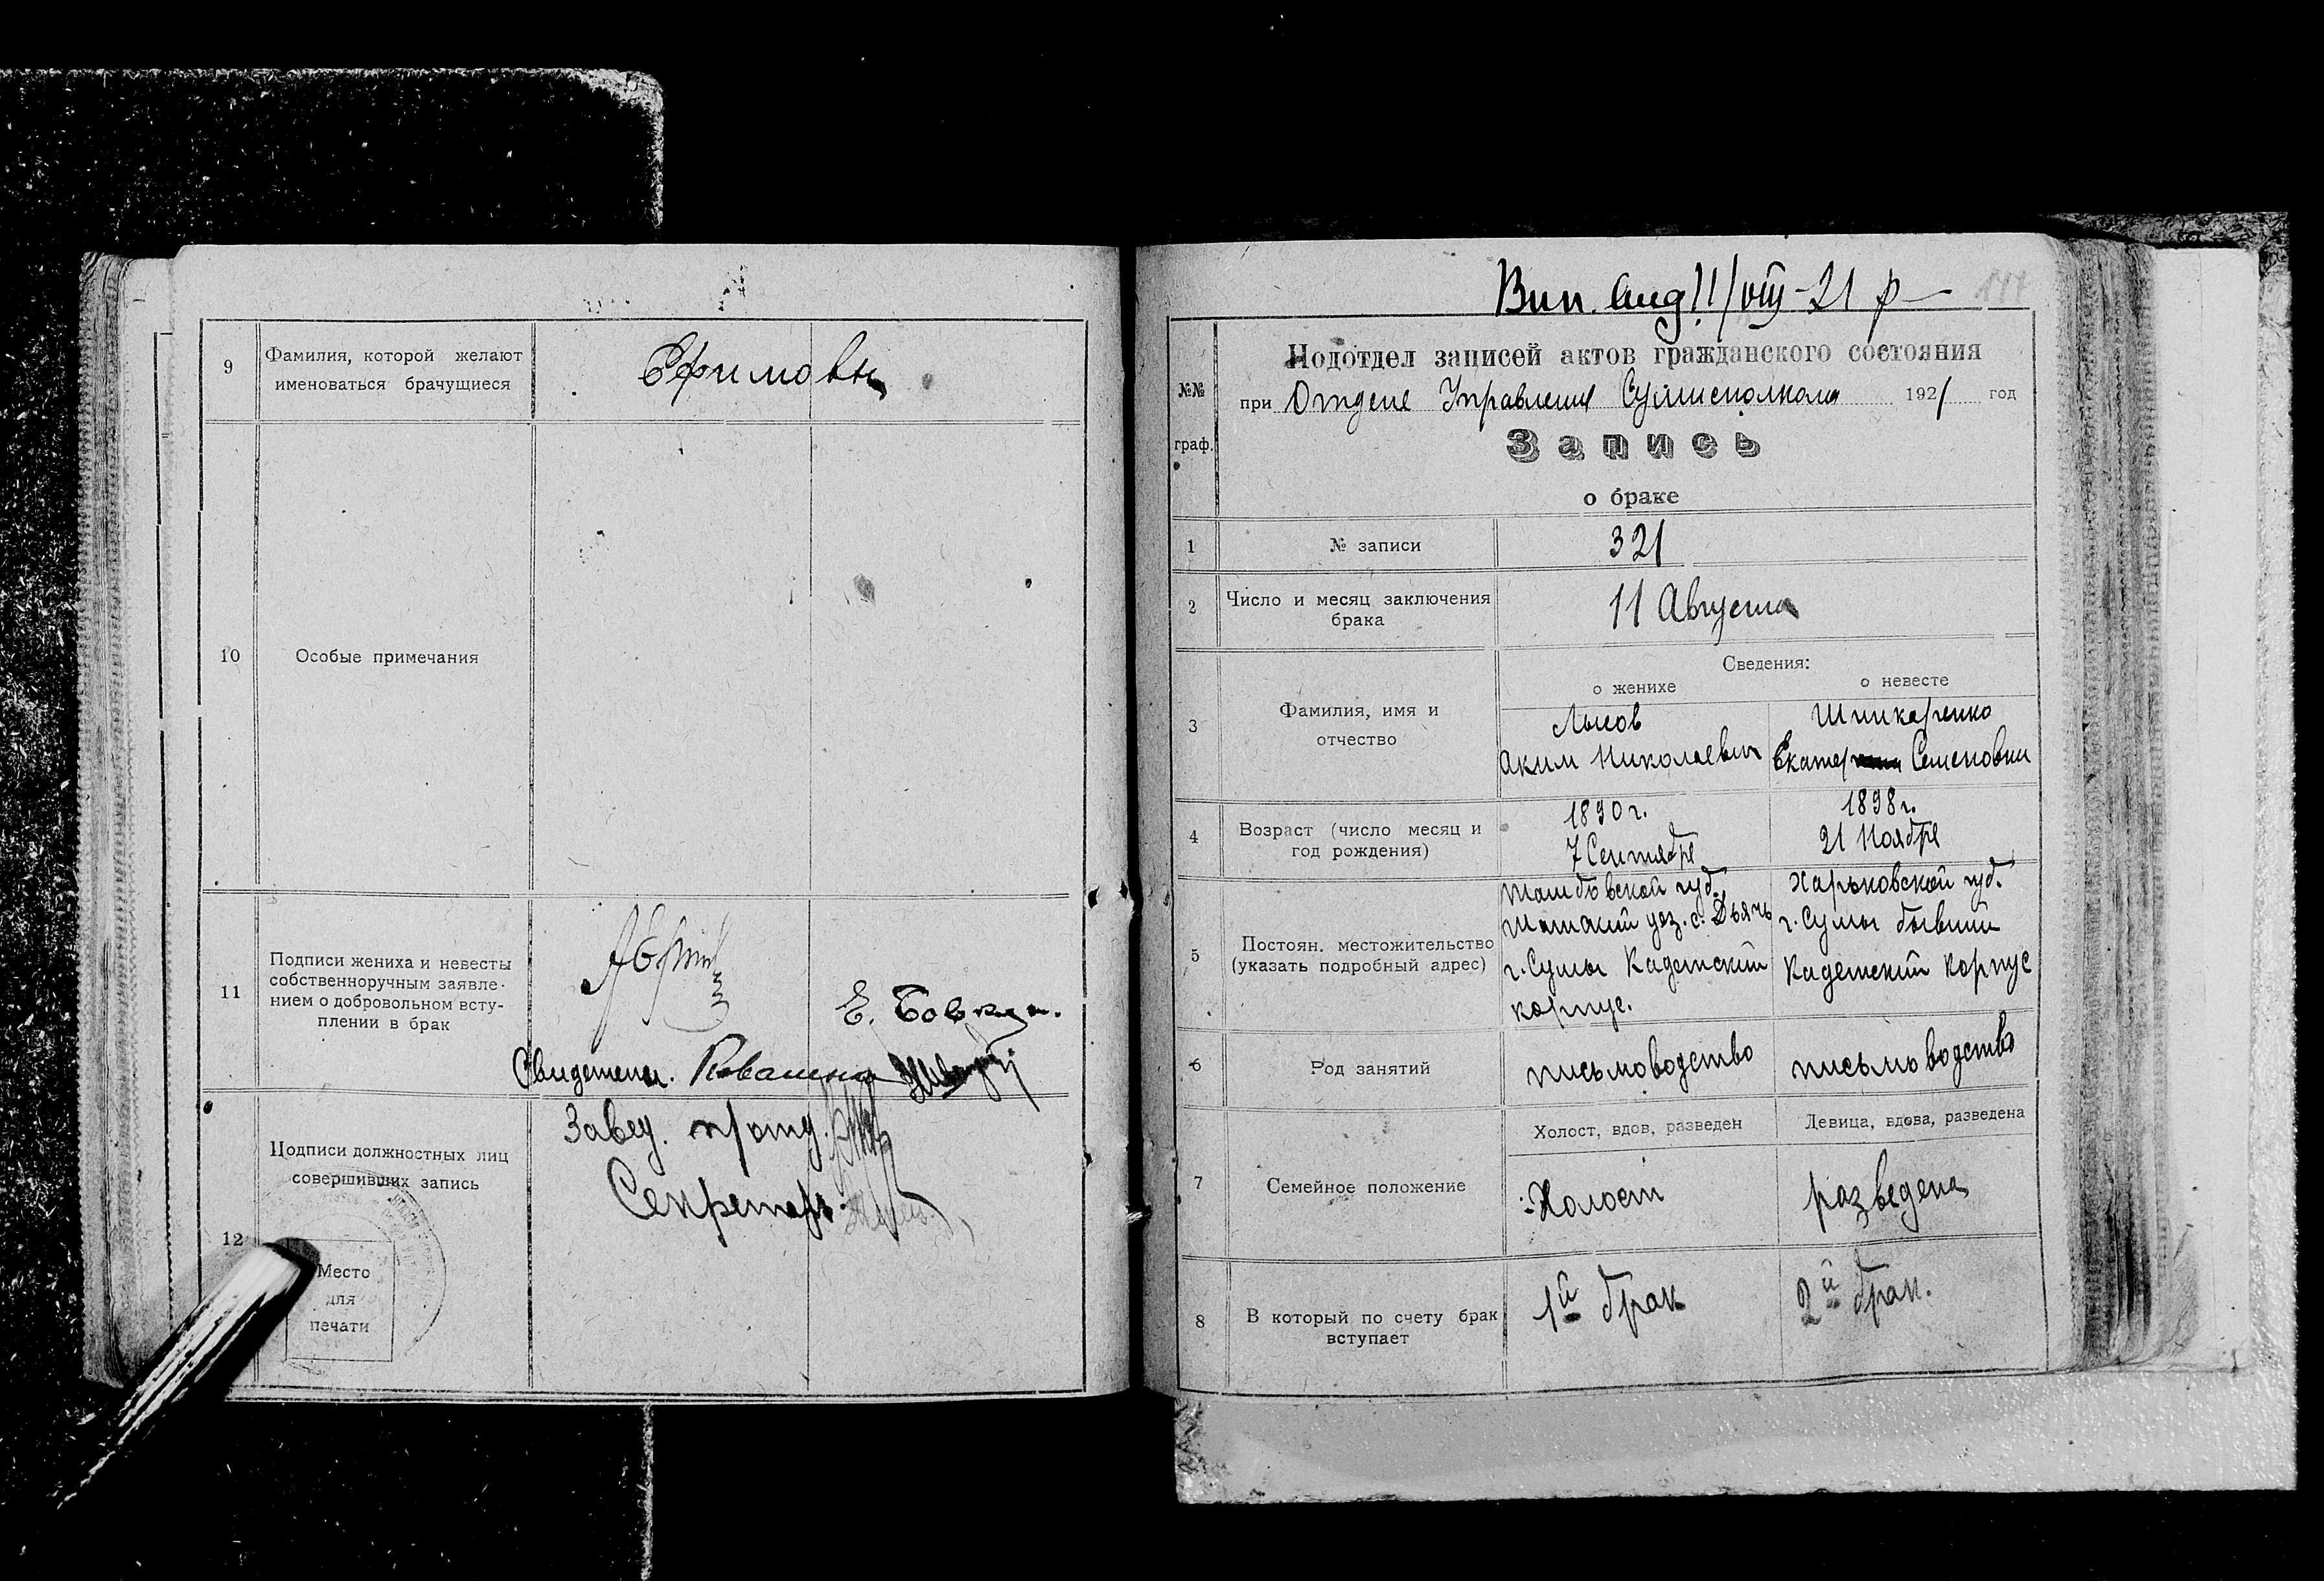 9
Фамилия, которой желают
именоваться брачущиеся
Ефимовы
10
Особые примечания
11
Подписи жениха и невесты
собственноручным заявле-
нием о добровольном всту-
плении в брак
Е.
Свидетели.
12
Подписи должностных лиц
совершивших запись
Завед. п/отд.
Секретарь
Место
для
печати
Вип. 11/VIII-21 р
Подотдел записей актов гражданского состояния
при Отделе Управления Сумисполкома 1921 год
№№
граф.
Запись
о браке
1
№ записи
321
2
Число и месяц заключения
брака
11 Августа
3
Фамилия, имя и
отчество
Сведения:
о женихе
о невесте
Лысов
Шинкаренко
Аким Николаевич
Семеновна
4
Возраст (число месяц и
год рождения)
1890 г.
1898 г.
7 Сентября
21 Ноября
5
Постоян. местожительство
(указать подробный адрес)
Тамбовской губ.
Харьковской губ.
Шацкий уез. с.
г. Сумы бывший
г. Сумы Кадетский
Кадетский корпус
корпус.
6
Род занятий
письмоводство
письмоводство
7
Семейное положение
Холост, вдов, разведен
Девица, вдова, разведена
Холост
разведена
8
В который по счету брак
вступает
1й брак
2й брак.